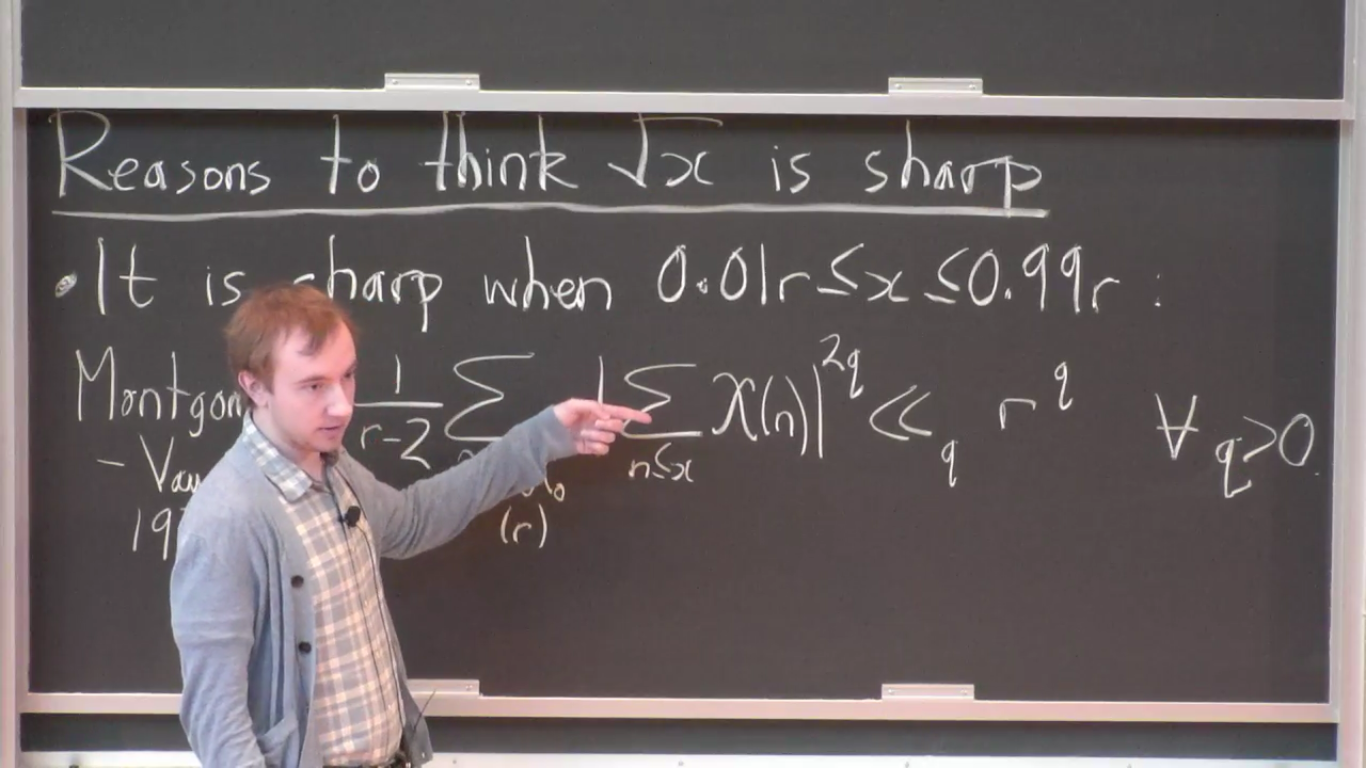 Reasons to think √x is sharp
• It is sharp when 0.01r ≤ x ≤ 0.99r :
1/(r-2) ∑ |∑_{n≤x} χ(n)|^{2q} ≪_q r^q ∀ q>0.
(r)